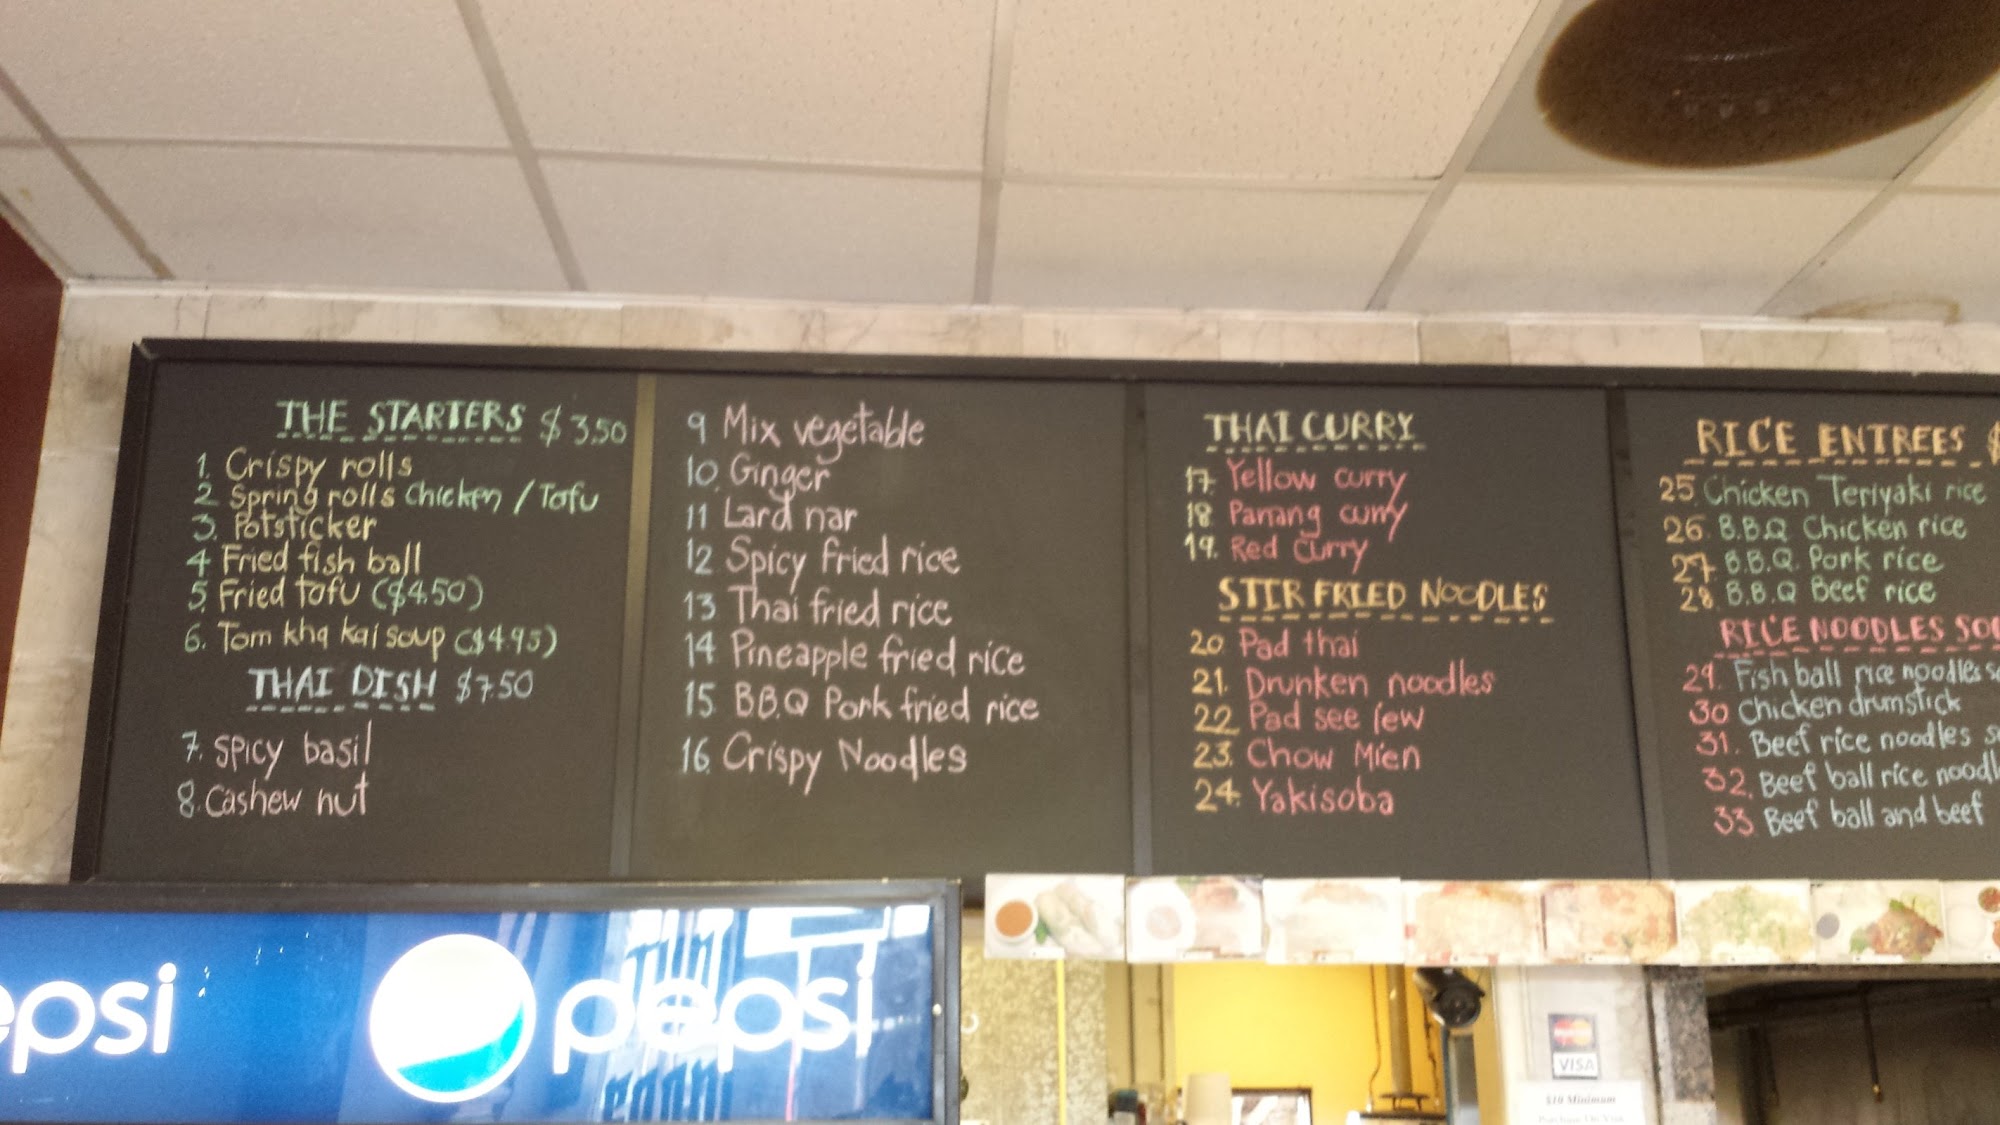 THE STARTERS $3.50
1. Crispy rolls
2 Spring rolls Chicken / Tofu
3. Potsticker
4 Fried fish ball
5 Fried tofu ($4.50)
6. Tom kha kai soup ($4.95)
THAI DISH $7.50
7. Spicy basil
8. Cashew nut
9 Mix vegetable
10. Ginger
11 Lard nar
12 Spicy fried rice
13 Thai fried rice
14 Pineapple fried rice
15 B.B.Q Pork fried rice
16 Crispy Noodles
THAI CURRY
17. Yellow curry
18 Panang curry
19. Red curry
STIR FRIED NOODLES
20 Pad thai
21. Drunken noodles
22 Pad see iew
23. Chow Mien
24. Yakisoba
RICE ENTREES $
25. Chicken Teriyaki rice
26. B.B.Q Chicken rice
27 B.B.Q. Pork rice
28. B.B.Q Beef rice
RICE NOODLES SOU
29. Fish ball rice noodles so
30 Chicken drumstick
31. Beef rice noodles s
32. Beef ball rice noodl
33 Beef ball and beef
epsi
pepsi
MasterCard
VISA
$10 Minimum